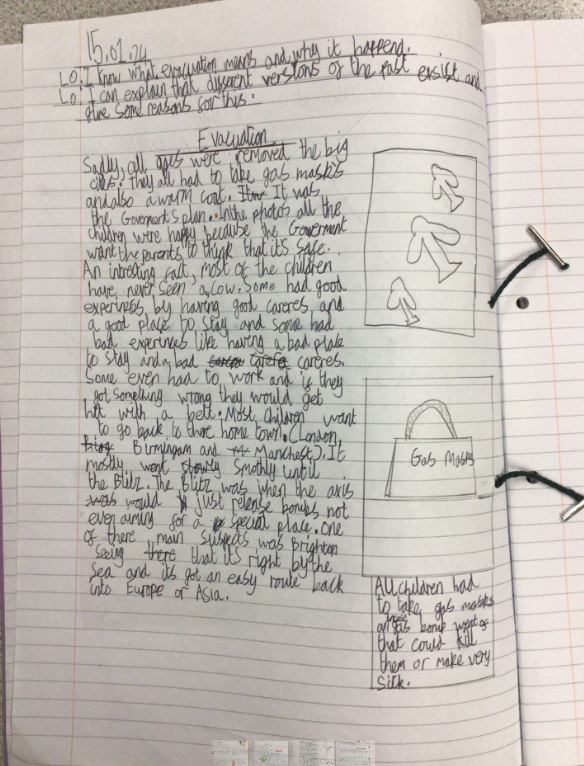 15.01.24
LO: I know what evacuation means and why it happend.
LO: I can explain that different versions of the past exsist and
give some reasons for this.
Evacuation
Sadly, all were removed the big
cities. They all had to take gas masks
and also a warm coat. It was
the Goverment's plan. In the photos all the
children were happy because the Goverment
want the parents to think that it's safe.
An intresting fact, most of the children
have never seen a cow. Some had good
experinces by having good careres, and
a good place to stay and some had
bad experinces like having a bad place
to stay and a bad careres.
Some even had to work and if they
got something wrong they would get
hit with a belt. Most children want
to go back to there home town. (London,
Birmingham and Manchest). It
mostly went smothly until
the Blitz. The Blitz was when the axis
would just release bombs not
even aiming for a special place. One
of there main suspects was Brighton
seeing that it's right by the
sea and its got an easy route back
into Europe or Asia.
Gas Masks
All children had
to take gas masks
gas bomp went of
that could kill
them or make very
sick.